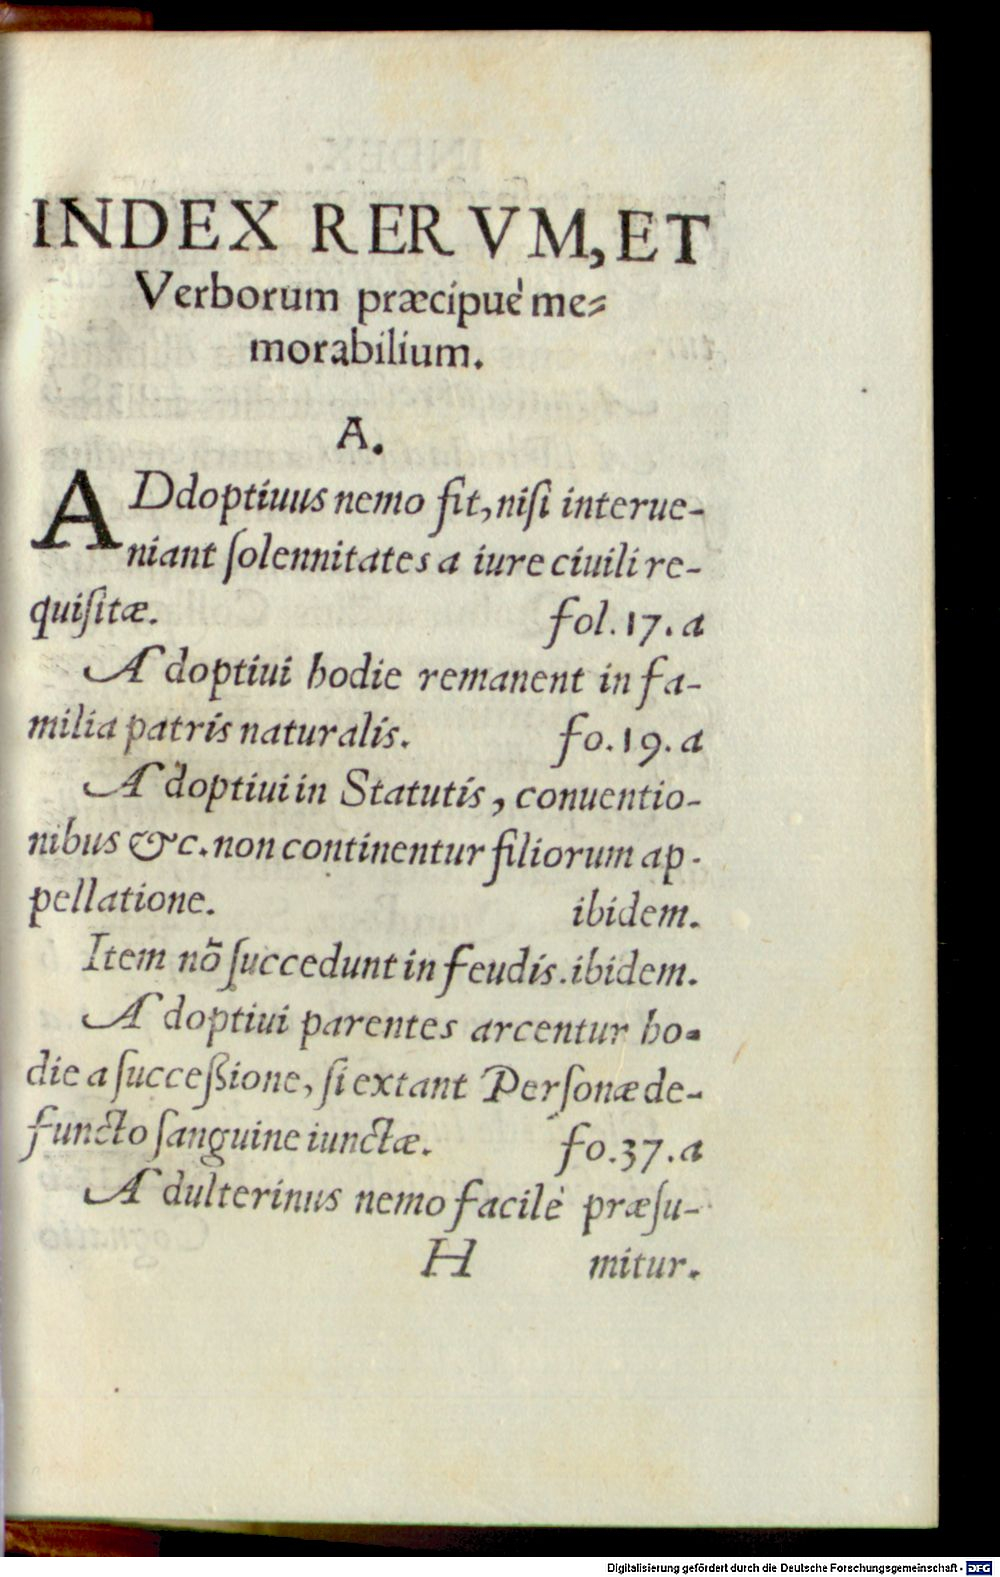 INDEX RERVM, ET
Verborum præcipuè me-
morabilium.
A.
ADdoptiuus nemo fit, niſi interue-
niant ſolennitates a iure ciuili re-
quiſitæ. fol. 17. a
Adoptiui hodie remanent in fa-
milia patris naturalis. fo. 19. a
Adoptiui in Statutis, conuentio-
nibus &c. non continentur filiorum ap-
pellatione. ibidem.
Item nõ ſuccedunt in feudis. ibidem.
Adoptiui parentes arcentur ho-
die a ſucceßione, ſi extant Perſonæ de-
functo ſanguine iunctæ. fo. 37. a
Adulterinus nemo facilè præſu-
H mitur.
Digitalisierung gefördert durch die Deutsche Forschungsgemeinschaft - DFG